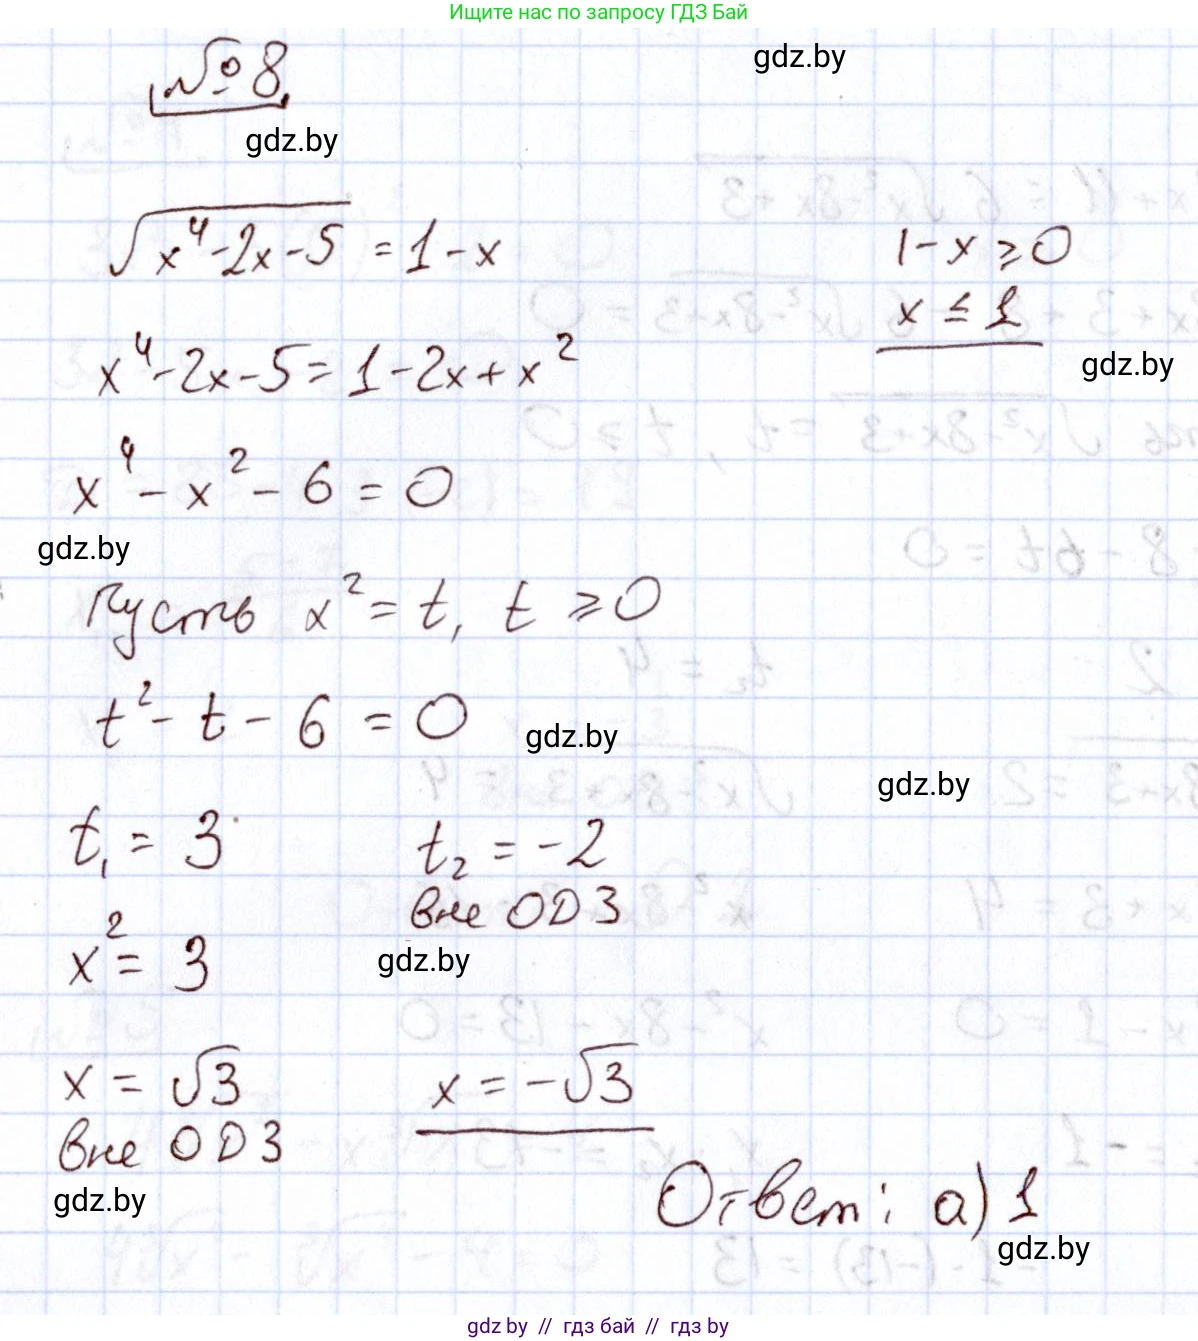 Ищите нас по запросу ГДЗ Бай
№ 8.
gdz.by
gdz.by
√(x⁴-2x-5) = 1-x
1-x ≥ 0
x ≤ 1
gdz.by
x⁴-2x-5 = 1-2x+x²
x⁴ - x² - 6 = 0
gdz.by
Пусть x² = t, t ≥ 0
t² - t - 6 = 0
gdz.by
gdz.by
t₁ = 3
t₂ = -2
вне ОДЗ
gdz.by
x² = 3
x = √3
x = -√3
вне ОДЗ
gdz.by
Ответ: а) 1
gdz.by
gdz.by // гдз бай // гдз by